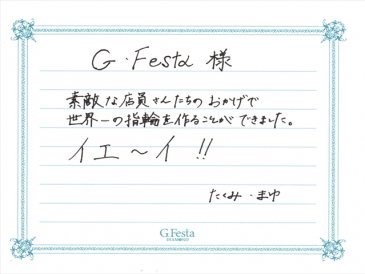 G.Festa 様
素敵な店員さんたちのおかげで
世界一の指輪を作ることができました。
イエ～イ !!
たくみ・まゆ
G.Festa
DIAMOND